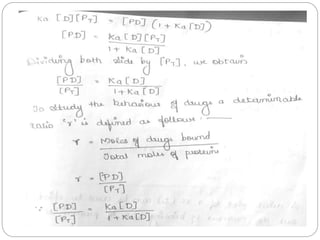 Ka [D][PT] = [PD] (1 + Ka[D])
[PD] = Ka[D][PT]
1 + Ka[D]
Dividing both side by [PT], we obtain
[PD] = Ka[D]
[PT] 1+Ka[D]
To study the behaviour of drugs a determinable
ratio 'r' is defined as follows:
r = Moles of drugs bound
Total moles of protein
r = [PD]
[PT]
∵ [PD] = Ka[D]
[PT] 1+Ka[D]